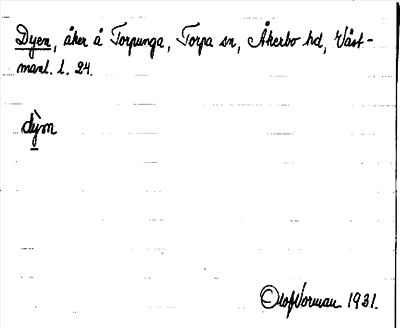 Dyen, åker å Torpunga, Torpa sn, Åkerbo hd, Väst-
manl. l. 24.
dỳm
Olof Norman 1931.